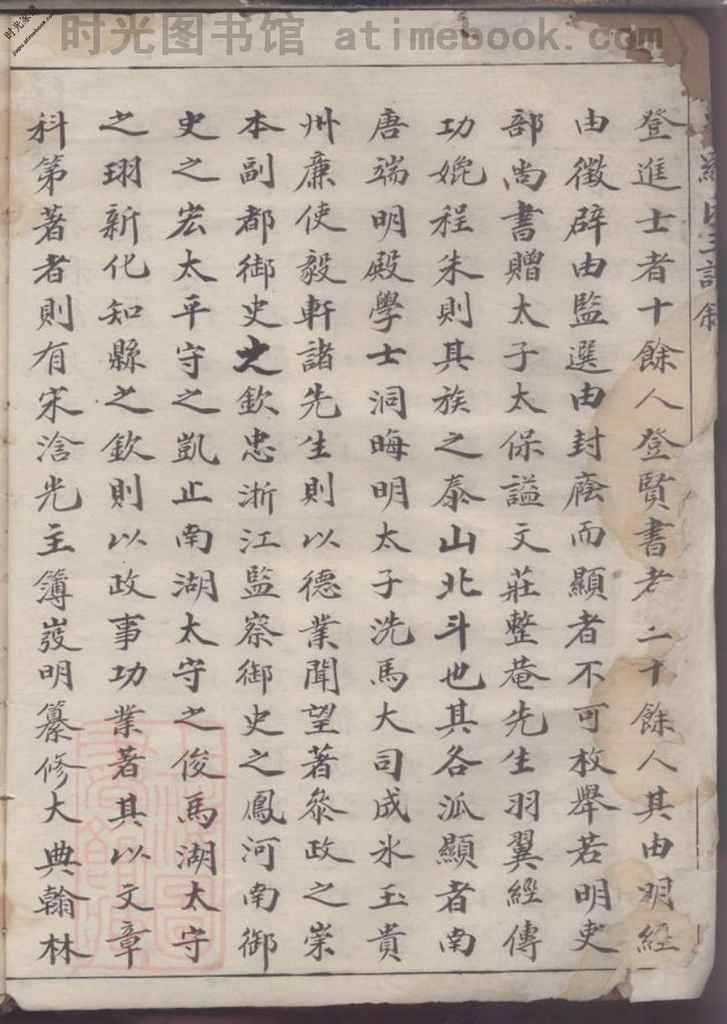 时光图书馆 atimebook.com
羅氏三記叙
登進士者十餘人登賢書者二十餘人其由明經
由徵辟由監選由封廕而顯者不可枚舉若明吏
部尚書贈太子太保謚文莊整菴先生羽翼經傳
功媲程朱則其族之泰山北斗也其各派顯者南
唐端明殿學士洞晦明太子洗馬大司成氷玉貴
州廉使毅軒諸先生則以德業聞望著叅政之崇
本副都御史之欽忠浙江監察御史之鳳河南御
史之宏太平守之凱止南湖太守之俊馬湖太守
之珝新化知縣之欽則以政事功業著其以文章
科第著者則有宋淦光主簿嵏明纂修大典翰林